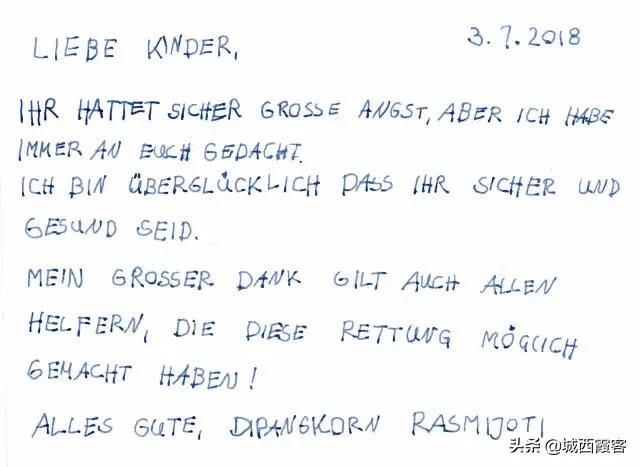 3.7.2018
LIEBE KINDER,
IHR HATTET SICHER GROSSE ANGST, ABER ICH HABE
IMMER AN EUCH GEDACHT.
ICH BIN ÜBERGLÜCKLICH DASS IHR SICHER UND
GESUND SEID.
MEIN GROSSER DANK GILT AUCH ALLEN
HELFERN, DIE DIESE RETTUNG MÖGLICH
GEMACHT HABEN!
ALLES GUTE, DIPANGKORN RASMIJOTI
头条 @城西霞客